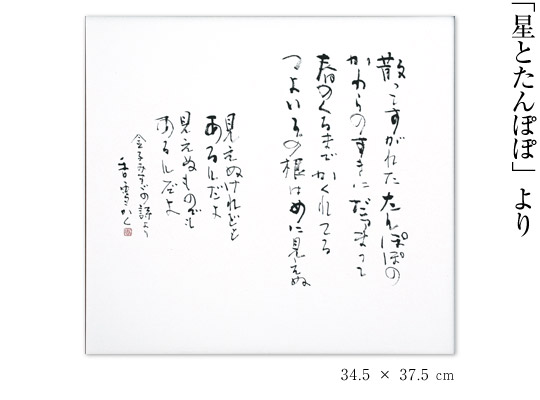 「星とたんぽぽ」より
散ってすがれたたんぽぽの
かわらのすきにだァまって
春のくるまでかくれてる
つよいその根はめに見えぬ
見えぬけれども
あるんだよ
見えぬものでも
あるんだよ
金子みすゞの詩より
かく
34.5 × 37.5 cm